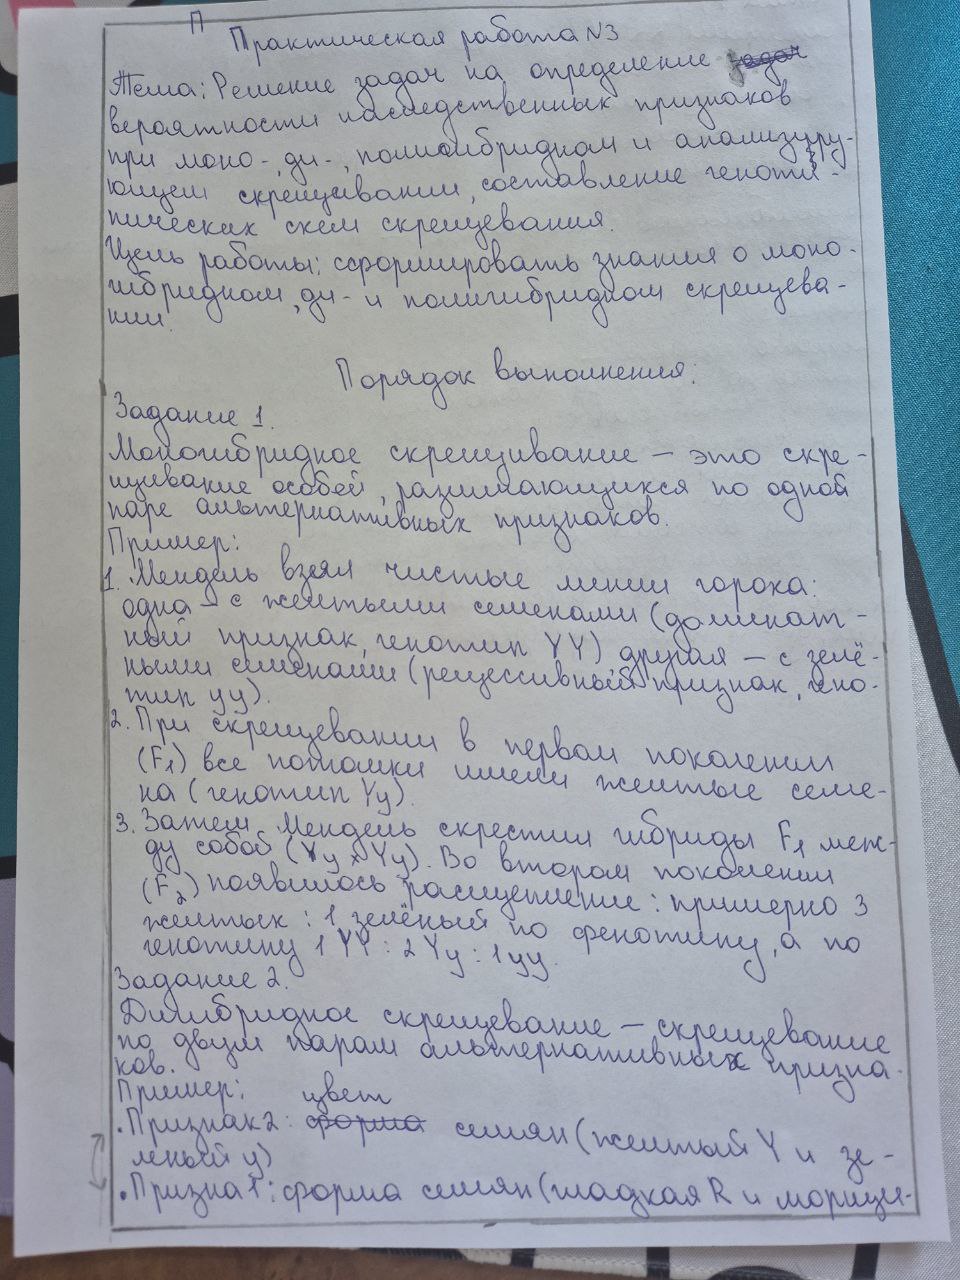 П
Практическая работа №3
Тема: Решение задач на определение задач
вероятности наследственных признаков
при моно-, ди-, полигибридном и анализиру-
ющем скрещивании, составление геноти-
пических схем скрещевания.
Цель работы: сформировать знания о моно-
гибридном, ди- и полигибридном скрещева-
нии.
Порядок выполнения:
Задание 1.
Моногибридное скрещивание – это скре-
щевание особей, различающихся по одной
паре альтернативных признаков.
Пример:
1. Мендель взял чистые линии гороха:
одна – с желтыми семенами (доминат-
ный признак, генотип YY) другая – с зелё-
ными семенами (рецессивный признак, гено-
тип yy).
2. При скрещевании в первом поколении
(F1) все потомки имели желтые семе-
на (генотип Yy).
3. Затем Мендель скрестил гибриды F1 меж-
ду собой (Yy x Yy). Во втором поколении
(F2) появилось расщепление: примерно 3
желтых : 1 зелёный по фенотипу, а по
генотипу 1 YY : 2 Yy : 1 yy.
Задание 2.
Дигибридное скрещевание – скрещевание
по двум парам альтернативных призна-
ков.
Пример: цвет
• Признак 2: форма семян (желтый Y и зе-
леный y)
• Призна 1: форма семян (гладкая R и морщи-